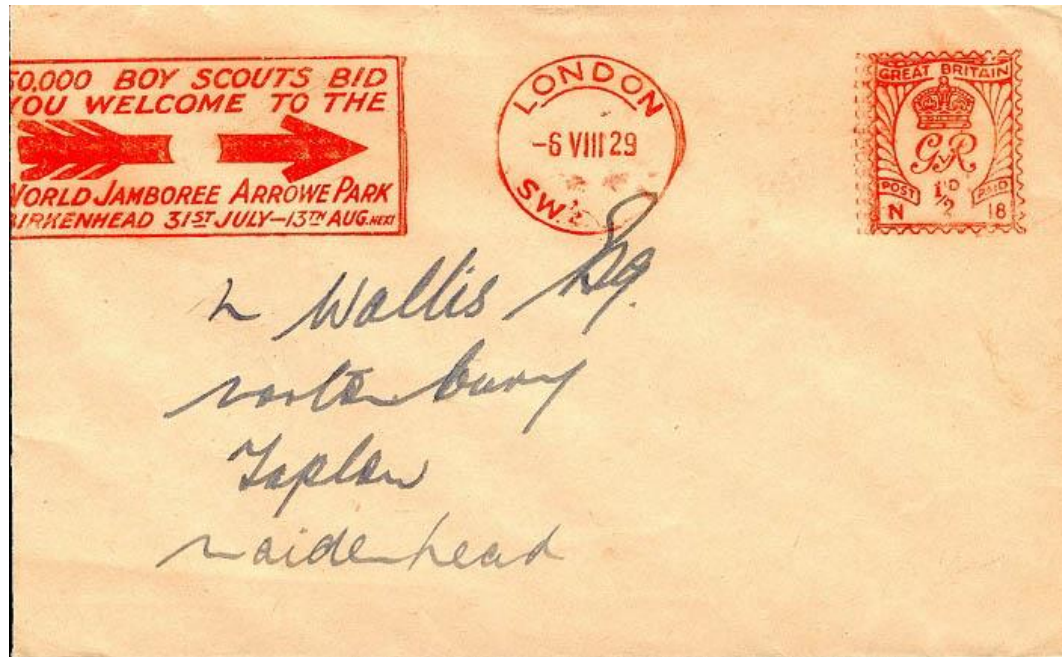 50,000 BOY SCOUTS BID
YOU WELCOME TO THE
WORLD JAMBOREE ARROWE PARK
BIRKENHEAD 31ST JULY-13TH AUG. NEXT
LONDON
-6 VIII 29
S.W.1
GREAT BRITAIN
GvR
POST ½D PAID
N 18
Wallis Esq.
Taplow
Maidenhead